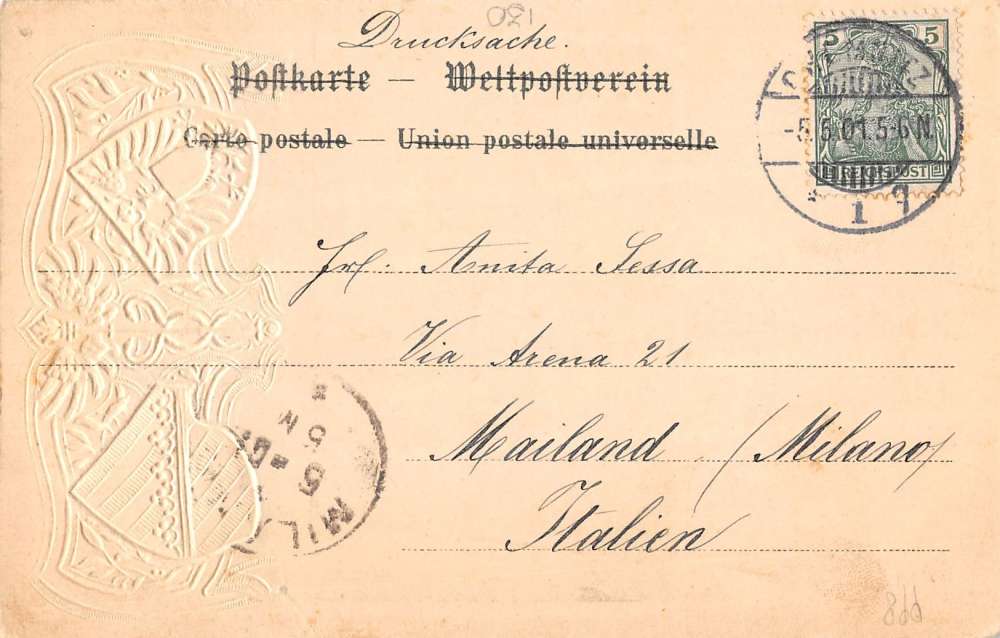 130
Drucksache.
Postkarte — Weltpostverein
Carte postale — Union postale universelle
5 5
REICHSPOST
-5.6.01.5-6N.
* 1 q
Frl. Anita Sessa
Via Arena 21
Mailand (Milano)
Italien
MIL